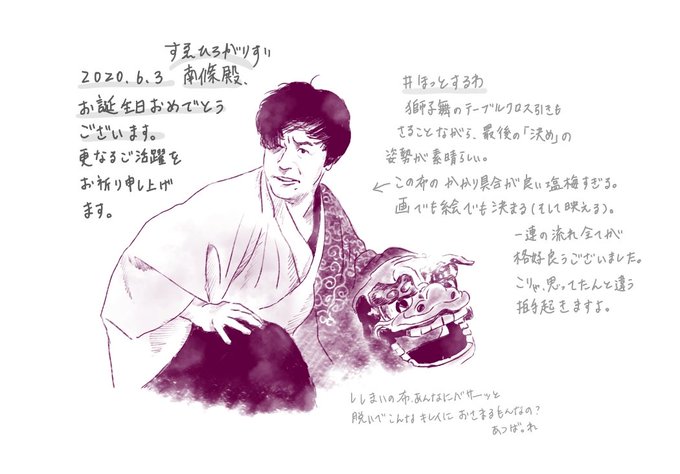 すゑひろがりずい
2020.6.3 南條殿、
お誕生日おめでとう
ございます。
更なるご活躍を
お祈り申し上げ
ます。
#ほっとするわ
獅子舞のテーブルクロス引きも
さることながら、最後の「決め」の
姿勢が素晴らしい。
← この布のかかり具合が良い塩梅すぎる。
画でも絵でも決まる(そして映える)。
一連の流れ全てが
格好良うございました。
こりゃ、思ってたんと違う
拍手起きますよ。
ししまいの布、あんなにバサーッと
脱いでこんなキレイにおさまるもんなの?
あつぱ。れ